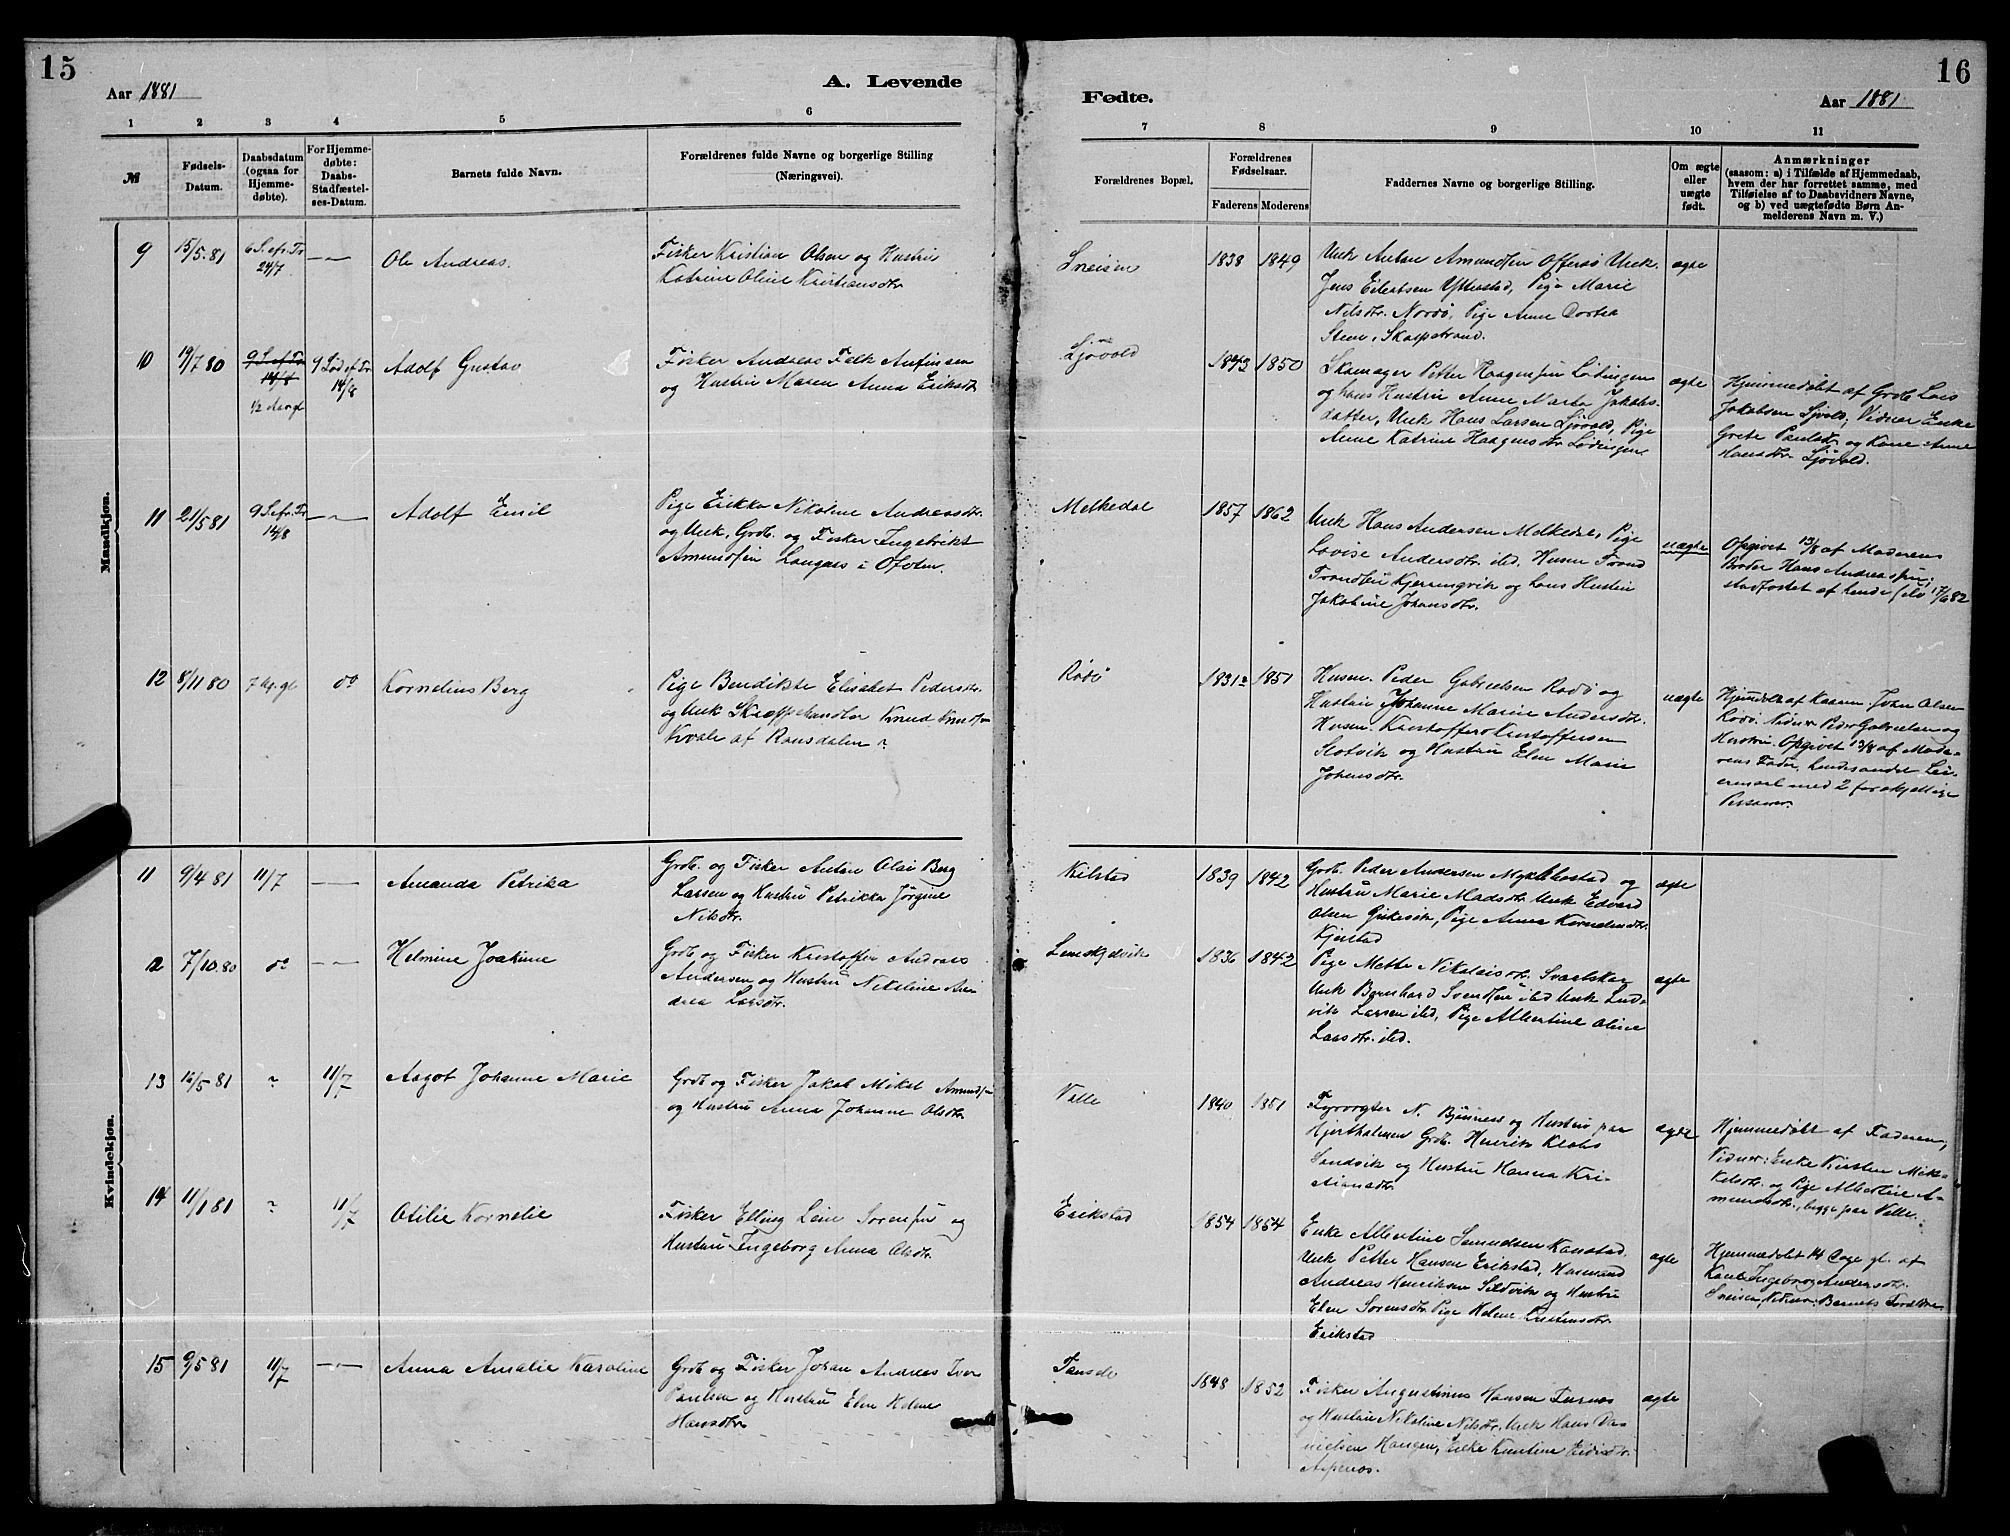 15
16
Aar 1881
A. Levende
Fødte.
Aar 1881
1 2 3 4 5 6
7 8 9 10 11
№
Fødsels-
Datum.
Daabsdatum
(ogsaa for
Hjemme-
døbte).
For Hjemme-
døbte:
Daabs-
Stadfæstel-
ses-Datum.
Barnets fulde Navn.
Forældrenes fulde Navne og borgerlige Stilling
(Næringsvei).
Forældrenes Bopæl.
Forældrenes
Fødselsaar.
Faderens Moderens
Faddernes Navne og borgerlige Stilling.
Om ægte
eller
uægte
født.
Anmærkninger
(saasom: a) i Tilfælde af Hjemmedaab,
hvem der har forrettet samme, med
Tilføielse af to Daabsvidners Navne,
og b) ved uægtefødte Børn An-
melderens Navn m. V.)
Mandkjøn.
9 15/5.81
6 S. ef. Tr
24/7
Ole Andreas.
Fisker Kristian Olsen og Hustru
Katrine Oline Kristiansdtr.
1838 1849
Unk. Anton Amundsen Offersø Unk.
Jens Eilertsen Ytterstad, Pige Marie
Nilsdtr. Nordø, Pige Anne Dortea
Steen, Skarpstrand.
ægte
10 19/7 80
9 S. ef Tr
14/8
1/2 Aar gl
9 Sød ef Tr
14/8
Adolf Gustav
Fisker Andreas Falk Anfinsen
og Hustru Maren Anna Eriksdtr
Sjøvold
1850
Skomager Petter Haagensen Lødingen
og hans Hustru Anne Marta Jakobs-
datter, Unk Hans Larsen Sjøvold, Pige
Anne Katrine Haagensdtr Lødingen
ægte
Hjemmedøbt af Grdb Lars
Jakobsen Sjvold, Vidner Enke
Grete Paulsdtr. og Kone Anne
Hansdtr. Sjøvold.
11 21/5 81
9 S. ef. Tr
14/8
Adolf Emil
Pige Erikka Nikoline Andreasdtr.
og Unk. Grdb. og Fisker Ingebrikt
Amundsen Langnes i Ofoten.
Melkedal
1857 1862
Unk Hans Andersen Melkedal, Pige
Lovise Andersdtr. ibd. Husm Trond
Trondsen Kjerringvik og hans Hustru
Jakobine Johansdtr.
uægte
Opgivet 13/8 af Moderens
Broder Hans Andreassen,
stadfæstet af hende selv 17/6 82
12 8/11 80
7 Ug. gl
do
Kornelius Berg
Pige Bendikte Elisabet Pedersdtr.
og Unk Skræppehandler Knud Knudsen
Kvale af Ramsdalen?
Rødø
1831? 1851
Husm. Peder Gabrielsen Rødø og
Hustru Johanne Marie Andersdtr.
Husm Kristoffer Kristoffersen
Slotvik og Hustru Elen Marie
Johansdtr.
uægte
Hjemdøbt af Kaaren Ivar Olsen
Rødø. Vidner Peder Gabrielsen og
Hustru. Opgivet 13/8 af Mode-
rens Fader, hendes andet Lei-
ermaal med 2 forskjellige
Personer.
Kvindekjøn.
11 9/4 81
11/7
Amanda Petrika
Grdb. og Fisker Anton Olai Berg
Larsen og Hustru Petrikka Jørgine
Nilsdtr.
Kilstad
1839 1842
Grdb. Peder Andersen Myklebostad og
Hustru Marie Madsdtr. Unk Edvard
Olsen Girkevik, Pige Anna Korneliusdtr.
Kjerstad
ægte
12 7/10.80
do
Helmine Joakime
Grdb. og Fisker Kristoffer Andreas
Andersen og Hustru Nikoline An-
drea Larsdtr.
1836 1842
Pige Mette Nikolaisdtr. Svartskar
Unk Bernhard Svendsen ibd Unk Lud-
vik Larsen ibd, Pige Albertine Oline
Larsdtr. ibd.
ægte
13 16/5 81
?
11/7
Aagot Johanne Marie
Grdb og Fisker Jakob Mikal Amundsen
og Hustru Anna Johanne Olsdtr.
Valle
1840 1851
Fyrvogter N. Bjønness og Hustru paa
Hjertholmen Grdb. Henrik Klaus
Sandvik og Hustru Hanna Kri-
stiansdtr.
ægte
Hjemmedøbt af Faderen,
Vidner: Enke Kirsten Mik-
kelsdtr. og Pige Albertine A-
mundsdtr., begge paa Valle.
14 11/1 81
?
11/7
Otilie Kornelie
Fisker Elling Leine Sorensen og
Hustru Ingeborg Anna Olsdtr.
Erikstad
1854 1854
Enke Albertine Samuelsen Kanstad
Unk Petter Hansen Erikstad, Husmand
Andreas Henriksen Sildvik og Hustru
Elen Sorensdtr. Pige Helene Kristensdtr.
Erikstad
ægte
Hjemmedøbt 14 Dage gl. af
Kone Ingeborg Andersdtr.
Sneisen, Vidner: Barnets Forældre
15 9/5 81
11/7
Anna Amalie Karoline
Grdb og Fisker Johan Andreas Iver
Paulsen og Hustru Elen Helene
Hansdtr.
1848 1852
Fisker Augustinus Hansen Turnes
og Hustru Nikoline Nilsdtr. Unk Hans Da-
nielsen Haugen, Enke Kristine
ægte